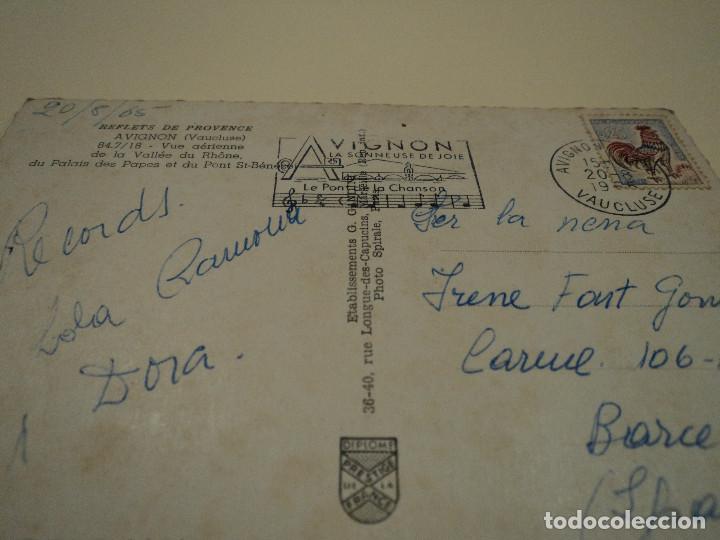 20/8/65
REFLETS DE PROVENCE
AVIGNON (Vaucluse)
84.7/18 - Vue aérienne
de la Vallée du Rhône,
du Palais des Papes et du Pont St-Bénézet
Records.
Lola Ramona
Dora.
AVIGNON
LA SONNEUSE DE JOIE
Le Pont de la Chanson
AVIGNON
20-8
19
VAUCLUSE
Etablissements G.
36-40, rue Longue-des-Capucins,
Photo Spirale,
DIPLOME
PRESTIGE
DE LA
FRANCE
la nena
Irene Fast Gom
Carme. 106-
Barce
(Spa
todocoleccion
todocoleccion.net